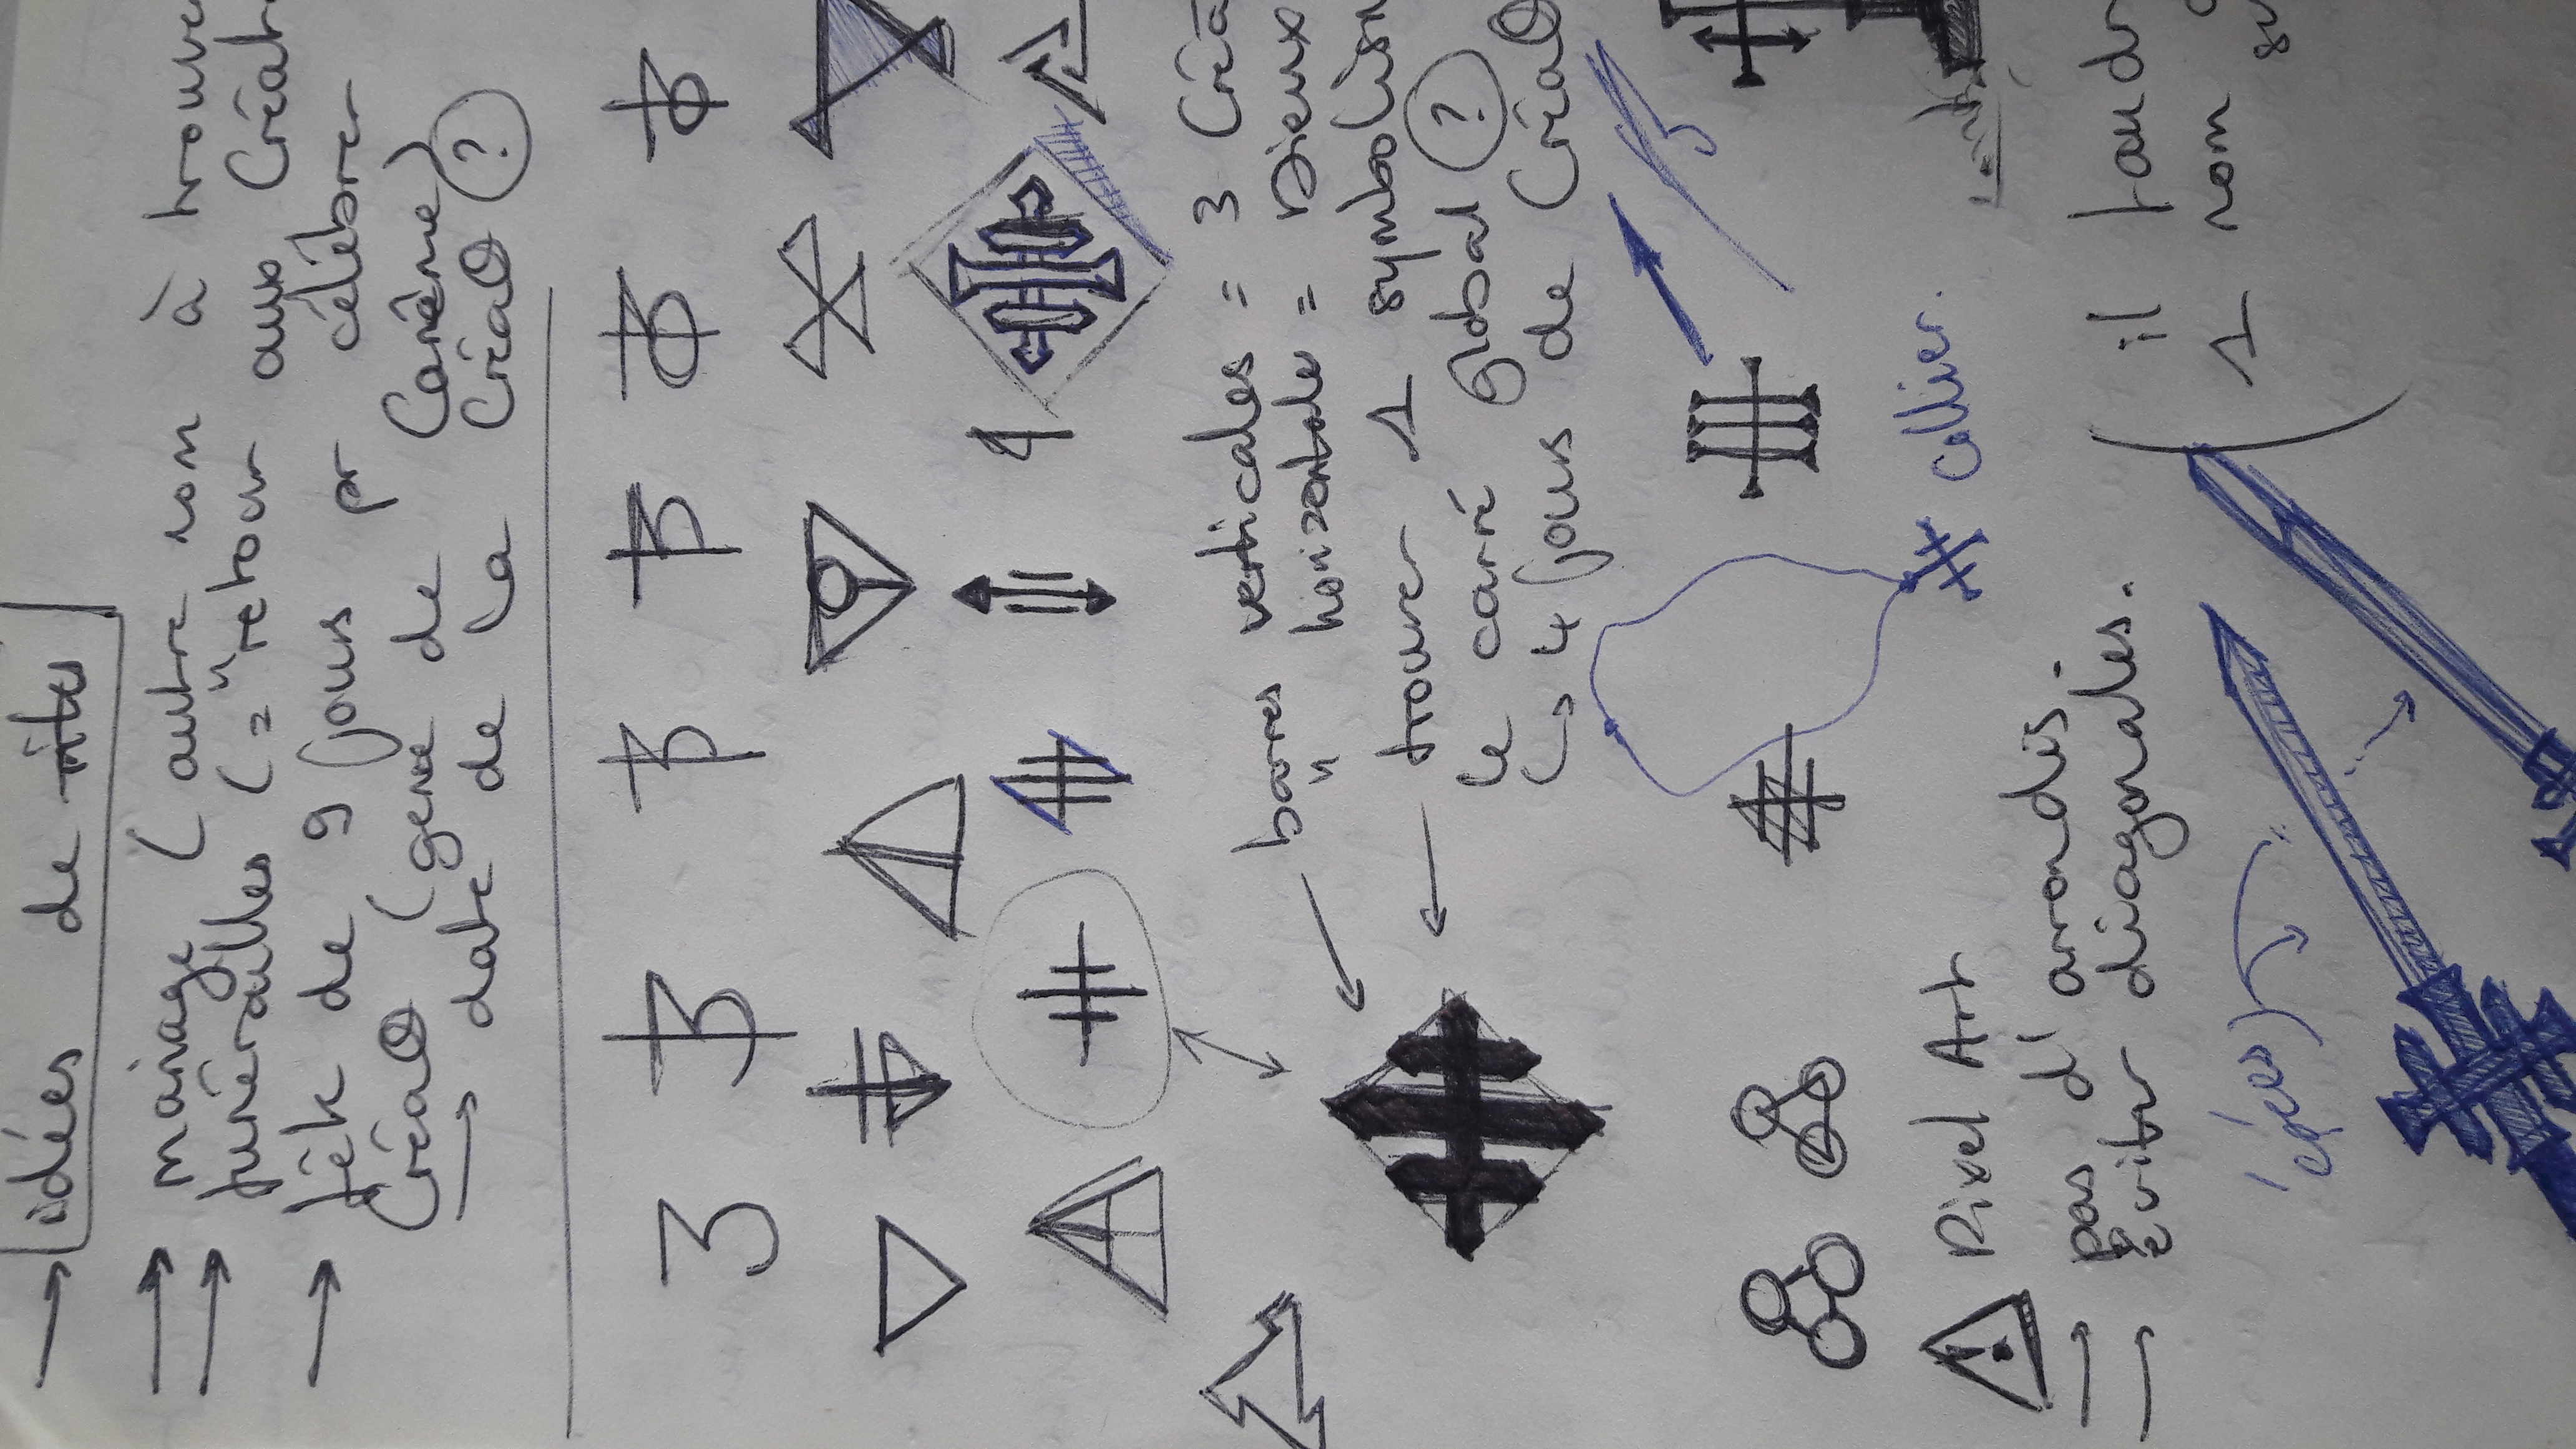 → idées de rites
→ mariage (autre nom à trouve
→ funérailles (= "retour aux Créat
→ fête de 9 jours pr célébrer
(genre de Carême)
→ date de la ?
3
barres verticales = 3 Créa
" horizontale = Dieux
→ trouver 1 symbolism
le carré Global ?
↳ 4 jours de
collier.
Pixel Art
→ pas d'arrondis.
→ éviter diagonales.
(il faudr
1 nom